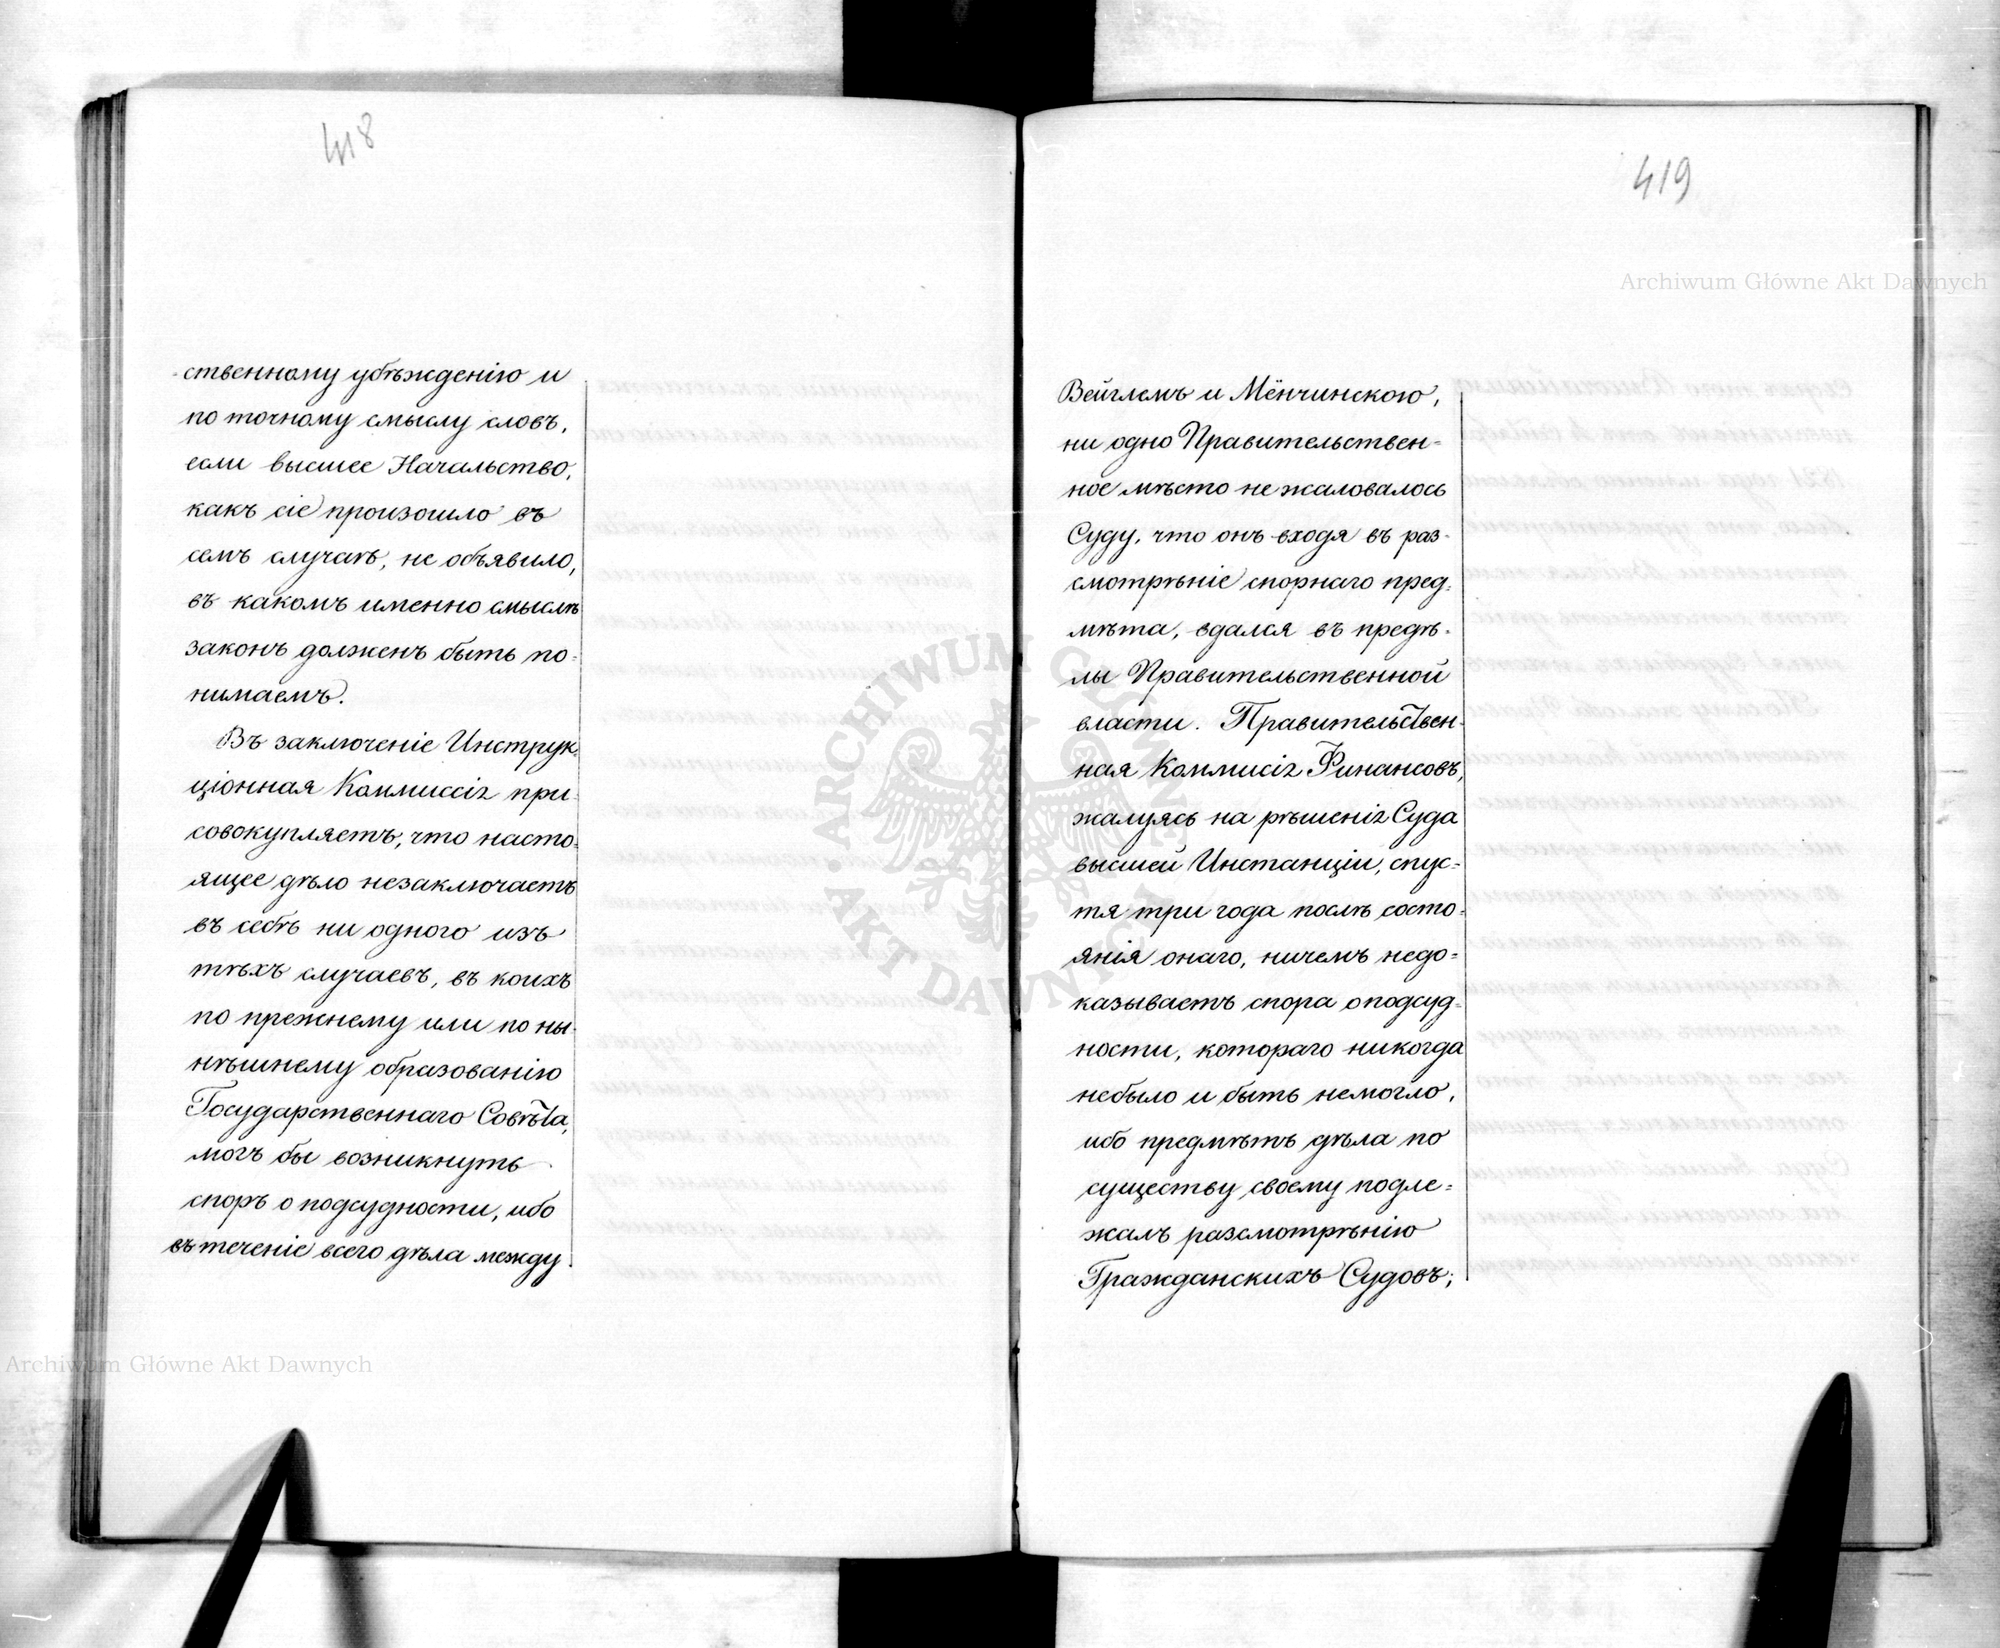 418
ственному убѣжденію и
по точному смыслу словъ,
если высшее Начальство,
какъ сіе произошло въ
семъ случаѣ, не объявило,
въ какомъ именно смыслѣ
законъ долженъ быть по-
нимаемъ.
Въ заключеніе Инструк-
ціонная Коммиссія при-
совокупляетъ, что насто-
ящее дѣло незаключаетъ
въ себѣ ни одного изъ
тѣхъ случаевъ, въ коихъ
по прежнему или по ны-
нѣшнему образованію
Государственнаго Совѣта,
могъ бы возникнуть
споръ о подсудности, ибо
въ теченіе всего дѣла между
419
Вейглемъ и Мёнчинскою,
ни одно Правительствен-
ное мѣсто не жаловалось
Суду, что онъ входя въ раз-
смотрѣніе спорнаго пред-
мѣта, вдался въ предѣ-
лы Правительственной
власти. Правительствен-
ная Коммисія Финансовъ,
жалуясь на рѣшенія Суда
высшей Инстанціи, спус-
тя три года послѣ состо-
янія онаго, ничемъ недо-
казываетъ спора о подсуд-
ности, котораго никогда
небыло и быть немогло,
ибо предмѣтъ дѣла по
существу своему подле-
жалъ разсмотрѣнію
Гражданскихъ Судовъ;
Archiwum Główne Akt Dawnych
Archiwum Główne Akt Dawnych
ARCHIWUM GŁÓWNE AKT DAWNYCH